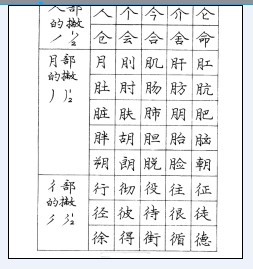 人部 人 个 今 介 仑
的撇 仓 会 合 舍 命
丿 ½
月部 月 刖 肌 肝 肛
的撇 肚 肘 肠 肪 肮
丿 丿½ 脏 肤 肺 朋 肥
胖 胡 胆 胎 脑
朔 朗 脱 脸 朝
彳部 行 彻 役 往 征
的撇 径 彼 待 很 徒
丿 丿½ 徐 得 街 循 德